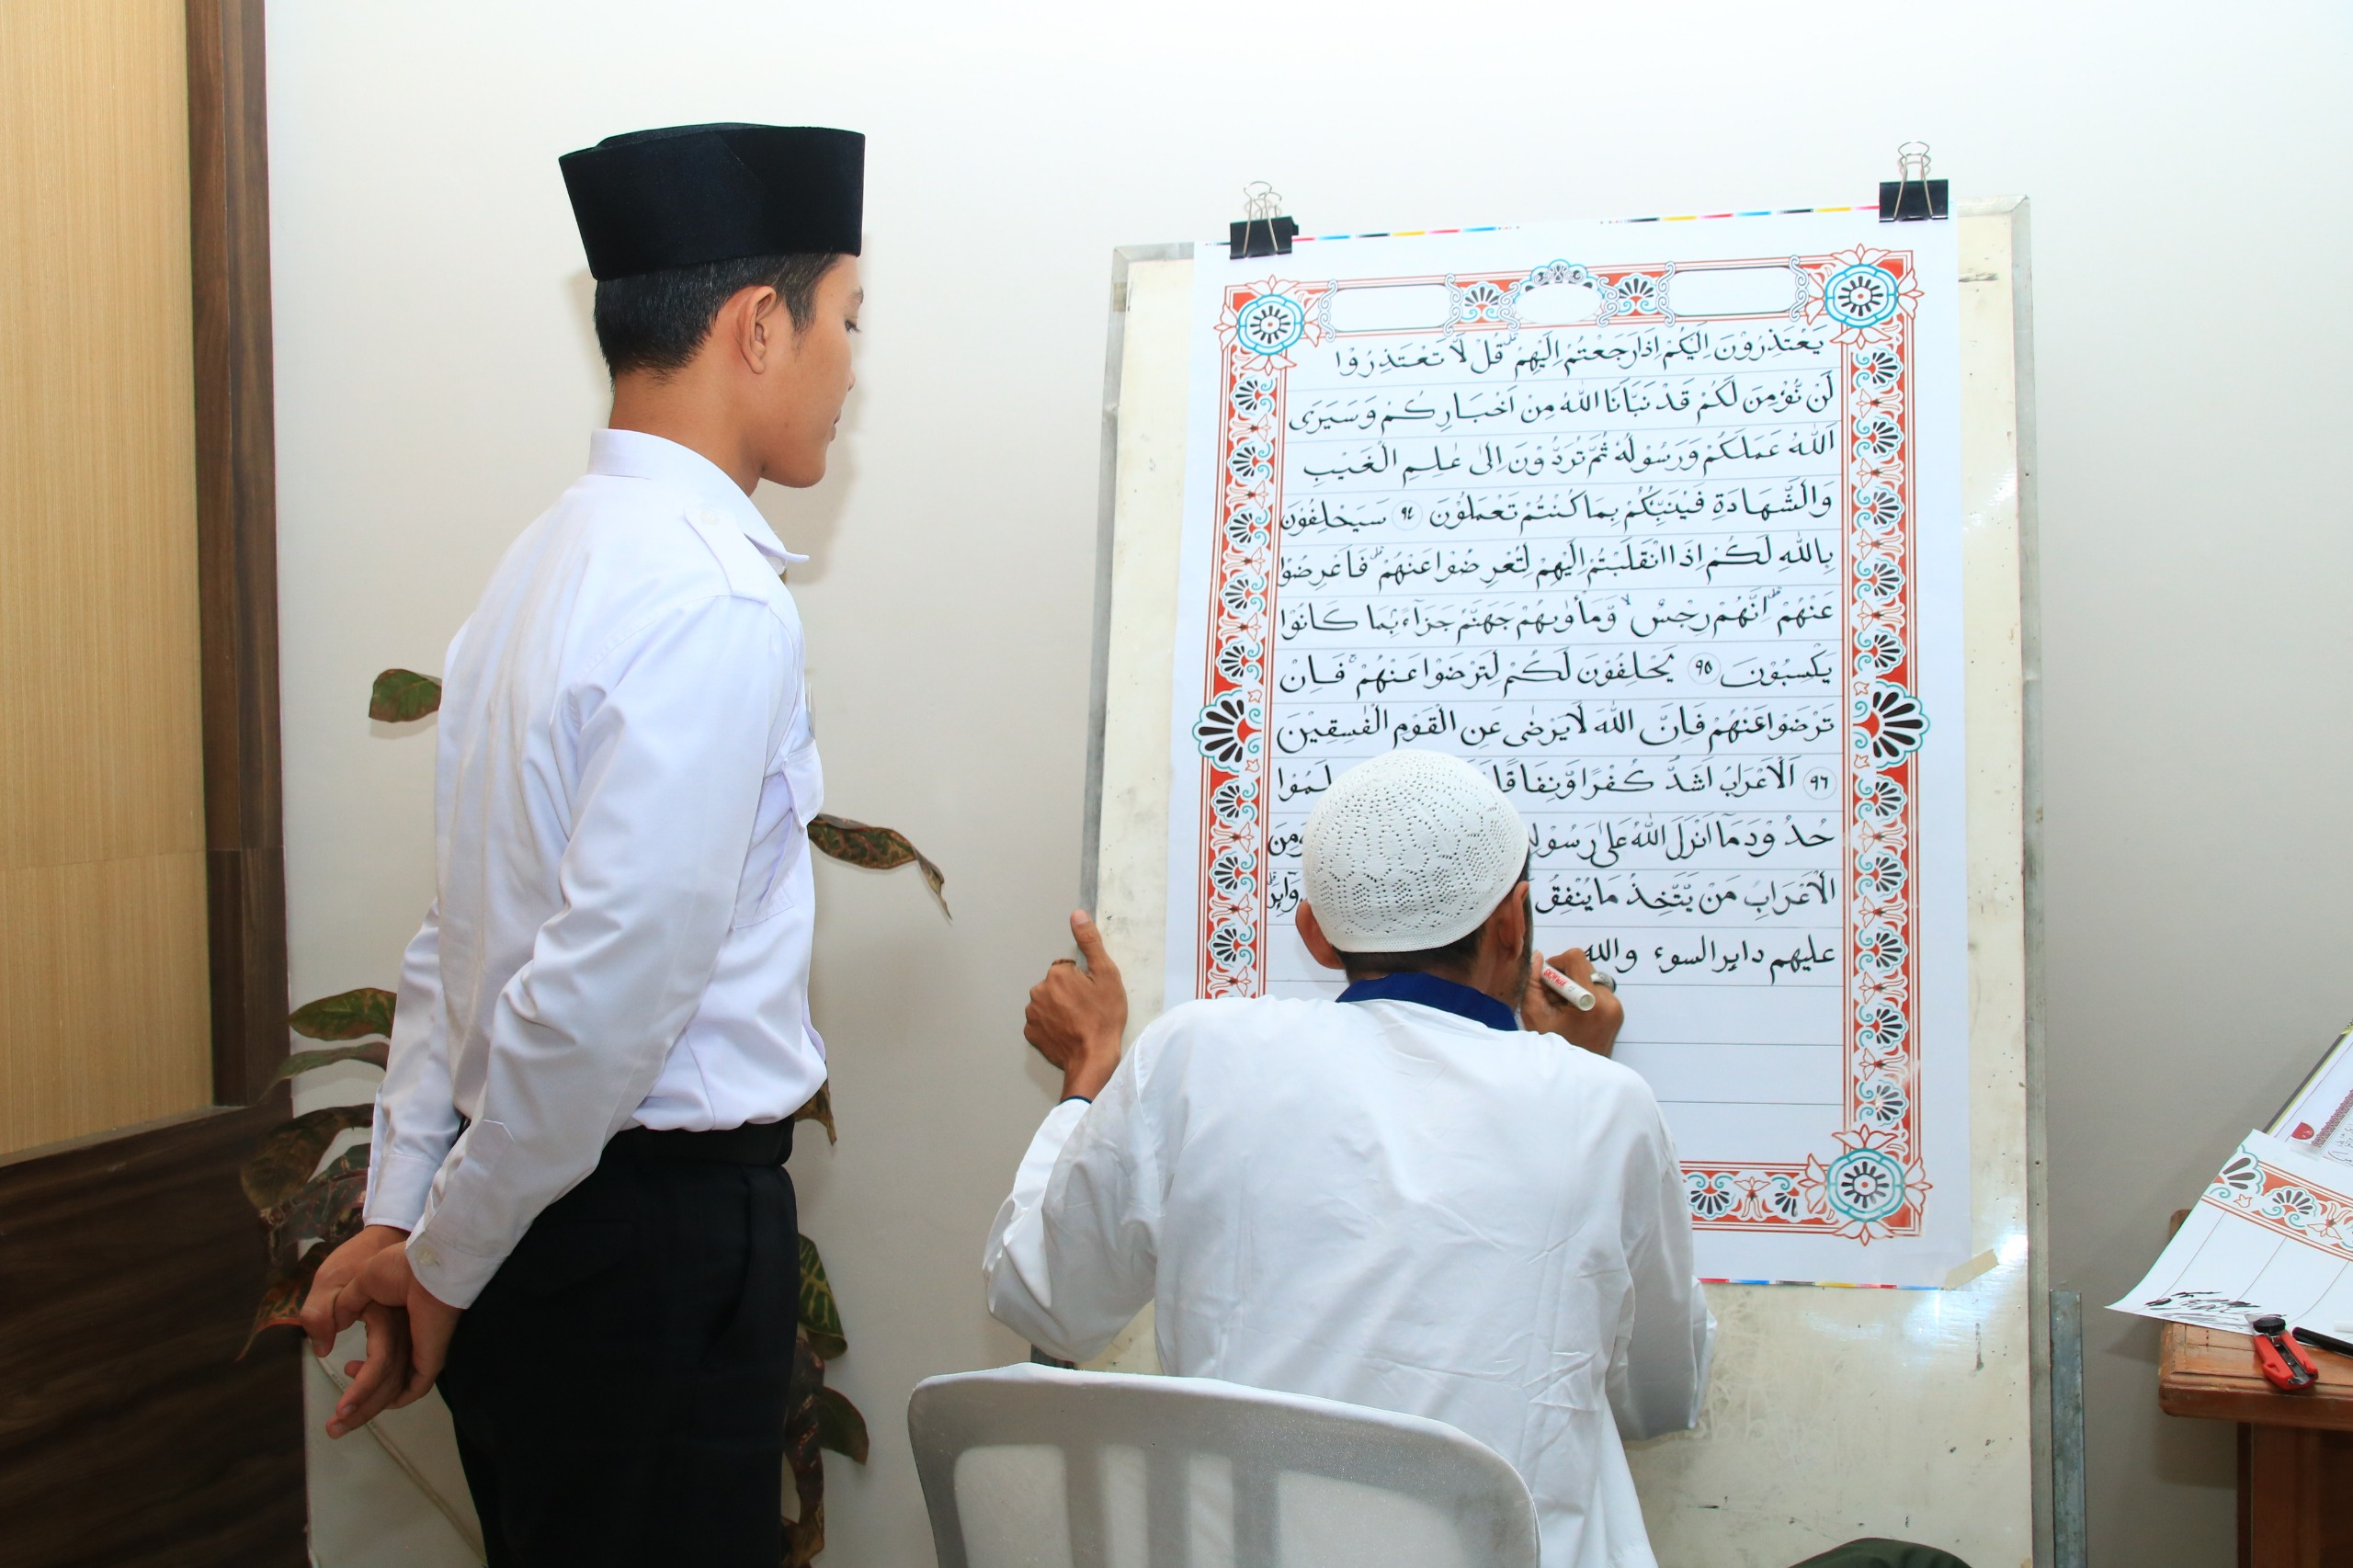 يَعْتَذِرُوْنَ اِلَيْكُمْ اِذَا رَجَعْتُمْ اِلَيْهِمْ ۗ قُلْ لَا تَعْتَذِرُوْا
لَنْ نُّؤْمِنَ لَكُمْ قَدْ نَبَّاَنَا اللّٰهُ مِنْ اَخْبَارِكُمْ وَسَيَرَى
اللّٰهُ عَمَلَكُمْ وَرَسُوْلُهٗ ثُمَّ تُرَدُّوْنَ اِلٰى عٰلِمِ الْغَيْبِ
وَالشَّهَادَةِ فَيُنَبِّئُكُمْ بِمَا كُنْتُمْ تَعْمَلُوْنَ ٩٤ سَيَحْلِفُوْنَ
بِاللّٰهِ لَكُمْ اِذَا انْقَلَبْتُمْ اِلَيْهِمْ لِتُعْرِضُوْا عَنْهُمْ ۗ فَاَعْرِضُوْا
عَنْهُمْ ۗ اِنَّهُمْ رِجْسٌ ۙ وَّمَأْوٰىهُمْ جَهَنَّمُ جَزَاۤءً ۢبِمَا كَانُوْا
يَكْسِبُوْنَ ٩٥ يَحْلِفُوْنَ لَكُمْ لِتَرْضَوْا عَنْهُمْ ۚ فَاِنْ
تَرْضَوْا عَنْهُمْ فَاِنَّ اللّٰهَ لَا يَرْضٰى عَنِ الْقَوْمِ الْفٰسِقِيْنَ
٩٦ اَلْاَعْرَابُ اَشَدُّ كُفْرًا وَّنِفَاقًا لَمُوْا
حُدُوْدَ مَآ اَنْزَلَ اللّٰهُ عَلٰى رَسُوْلِه وَمِنَ
الْاَعْرَابِ مَنْ يَّتَّخِذُ مَا يُنْفِقُ
عليهم دايرالسوء والله